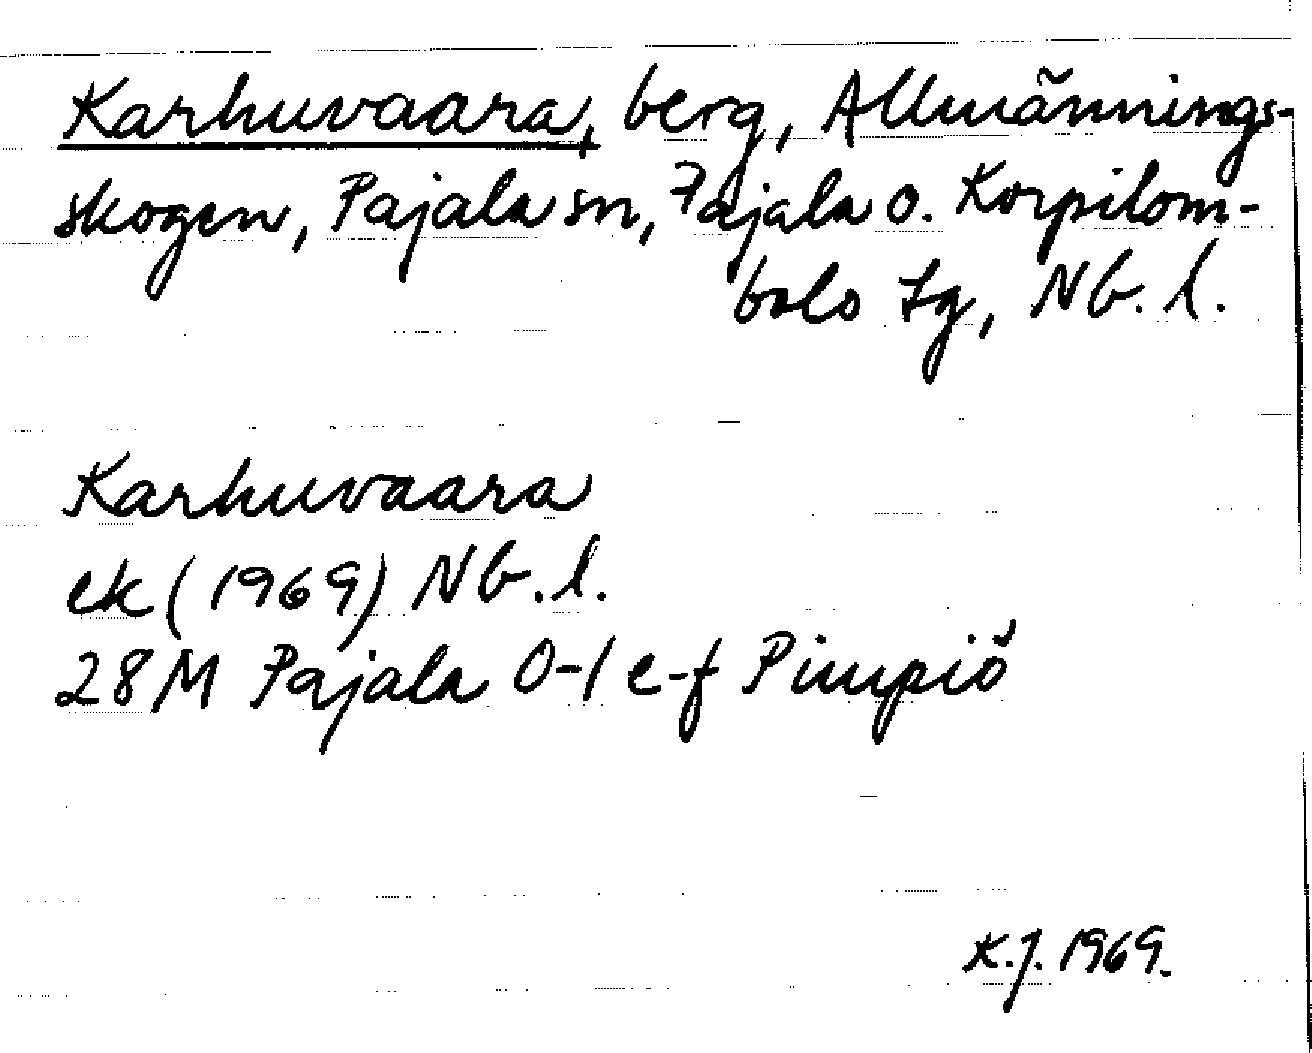 Karhuvaara, berg, Allmännings-
skogen, Pajala sn, Pajala o. Korpilom-
bolo tg, Nb. l.
Karhuvaara
ek (1969) Nb. l.
28 M Pajala 0-1 e-f Piupiö
K.J. 1969.